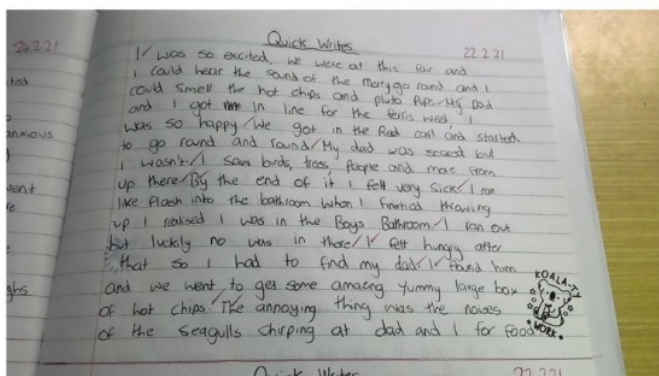 24.2.21
Quick Writes
22.2.21
I was so excited, we were at this fair and
I could hear the sound of the merry go rand and I
could smell the hot chips and pluto Pups. My Dad
and I got in line for the ferris weel, I
was so happy. We got in the Red cart and started
to go round and round. My dad was scared but
I wasn't. I saw birds, trees, People and more from
up there. By the end of it I felt very sick. I ran
like Flash into the bathroom when I finished throwing
up I realised I was in the Boys Bathroom. I ran out
but luckily no was in there. I felt hungry after
that so I had to find my dad. I found him
and we went to get some amazing yummy large box
of hot chips. The annoying thing was the noises
of the seagulls chirping at dad and I for food.
KOALA-TY
WORK.
anxious
ghs
Quick Writes
22.2.21